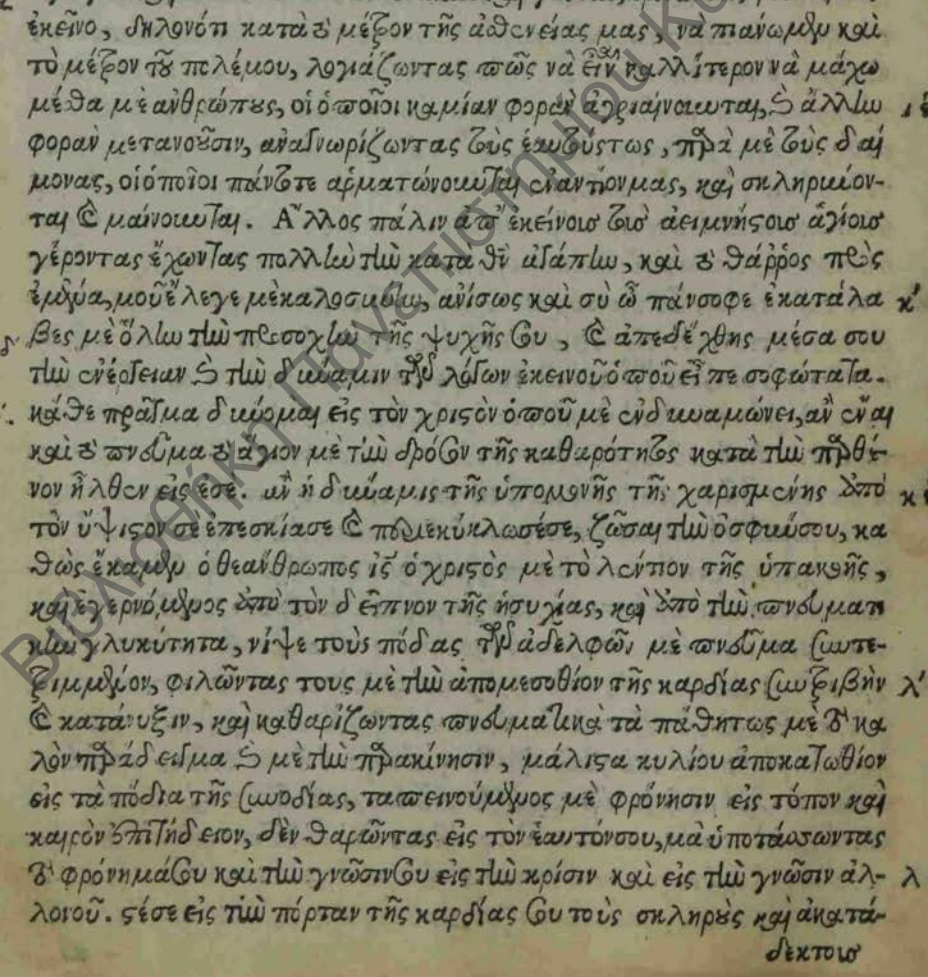 ἐκεῖνο, δηλονότι κατὰ τὸ μέτρον τῆς ἀσθενείας μας, νὰ πιάνωμεν καὶ
τὸ μέτρον τοῦ πολέμου, λογιάζωντας πῶς νὰ εἶναι καλλίτερον νὰ μάχω
μέσθα μὲ ἀνθρώπους, οἱ ὁποῖοι καμίαν φορὰν ἀγριαίνουνται, καὶ ἄλλην
φορὰν μετανοῦσιν, ἀναγνωρίζωντας τοὺς ἑαυτούς τως, παρὰ μὲ τοὺς δαί
μονας, οἱ ὁποῖοι πάντοτε ἀρματώνουνται ἐναντίον μας, καὶ σκληρύνον-
ται καὶ μαίνουνται. Ἄλλος πάλιν ἀπ' ἐκείνοις τοῖς ἀειμνήστοις ἁγίοις
γέροντας ἔχωντας πολλὴν τὴν κατὰ θεὸν ἀγάπην, καὶ τὸ θάρρος πρὸς
ἐμένα, μοῦ ἔλεγε μὲ καλοσύνην, ἀνίσως καὶ σὺ ὦ πάνσοφε ἐκατάλα
βες μὲ ὅλην τὴν προσοχὴν τῆς ψυχῆς σου, καὶ ἀπεδέχθης μέσα σου
τὴν ἐνέργειαν καὶ τὴν δύναμιν τῶν λόγων ἐκεινοῦ ὁποῦ εἶπε σοφώτατα.
κάθε πρᾶγμα δύνομαι εἰς τὸν χριστὸν ὁποῦ μὲ ἐνδυναμώνει, ἂν ἔναι
καὶ τὸ πνεῦμα τὸ ἅγιον μὲ τὴν δρόσον τῆς καθαρότητος κατὰ τὴν παρθέ-
νον ἦλθεν εἰς ἐσέ. ἂν ἡ δύναμις τῆς ὑπομονῆς τῆς χαρισμένης ἀπὸ
τὸν ὕψιστον σὲ ἐπεσκίασε καὶ περιεκύκλωσέ σε, ζῶσαι τὴν ὀσφύν σου, κα
θὼς ἔκαμεν ὁ θεάνθρωπος ις ὁ χριστὸς μὲ τὸ λέντιον τῆς ὑπακοῆς,
καὶ ἐγερνόμενος ἀπὸ τὸν δεῖπνον τῆς ἡσυχίας, καὶ ἀπὸ τὴν πνευματι
κὴν γλυκύτητα, νίψε τοὺς πόδας τῶν ἀδελφῶν μὲ πνεῦμα συντε-
τριμμένον, φιλῶντας τους μὲ τὴν ἀπομεσοθίον τῆς καρδίας συντριβὴν
καὶ κατάνυξιν, καὶ καθαρίζωντας πνευματικὰ τὰ πάθητως μὲ τὸ κα
λὸν παράδειγμα καὶ μὲ τὴν παρακίνησιν, μάλιστα κυλίου ἀποκατωθίον
εἰς τὰ πόδια τῆς συνοδίας, ταπεινούμενος μὲ φρόνησιν εἰς τόπον καὶ
καιρὸν ἐπιτήδειον, δὲν θαρῶντας εἰς τὸν ἑαυτόνσου, μὰ ὑποτάσσωντας
τὸ φρόνημάσου καὶ τὴν γνῶσίνσου εἰς τὴν κρίσιν καὶ εἰς τὴν γνῶσιν ἀλ-
λουνοῦ. στέσε εἰς τὴν πόρταν τῆς καρδίας σου τοὺς σκληροὺς καὶ ἀκατά-
δεκτοις